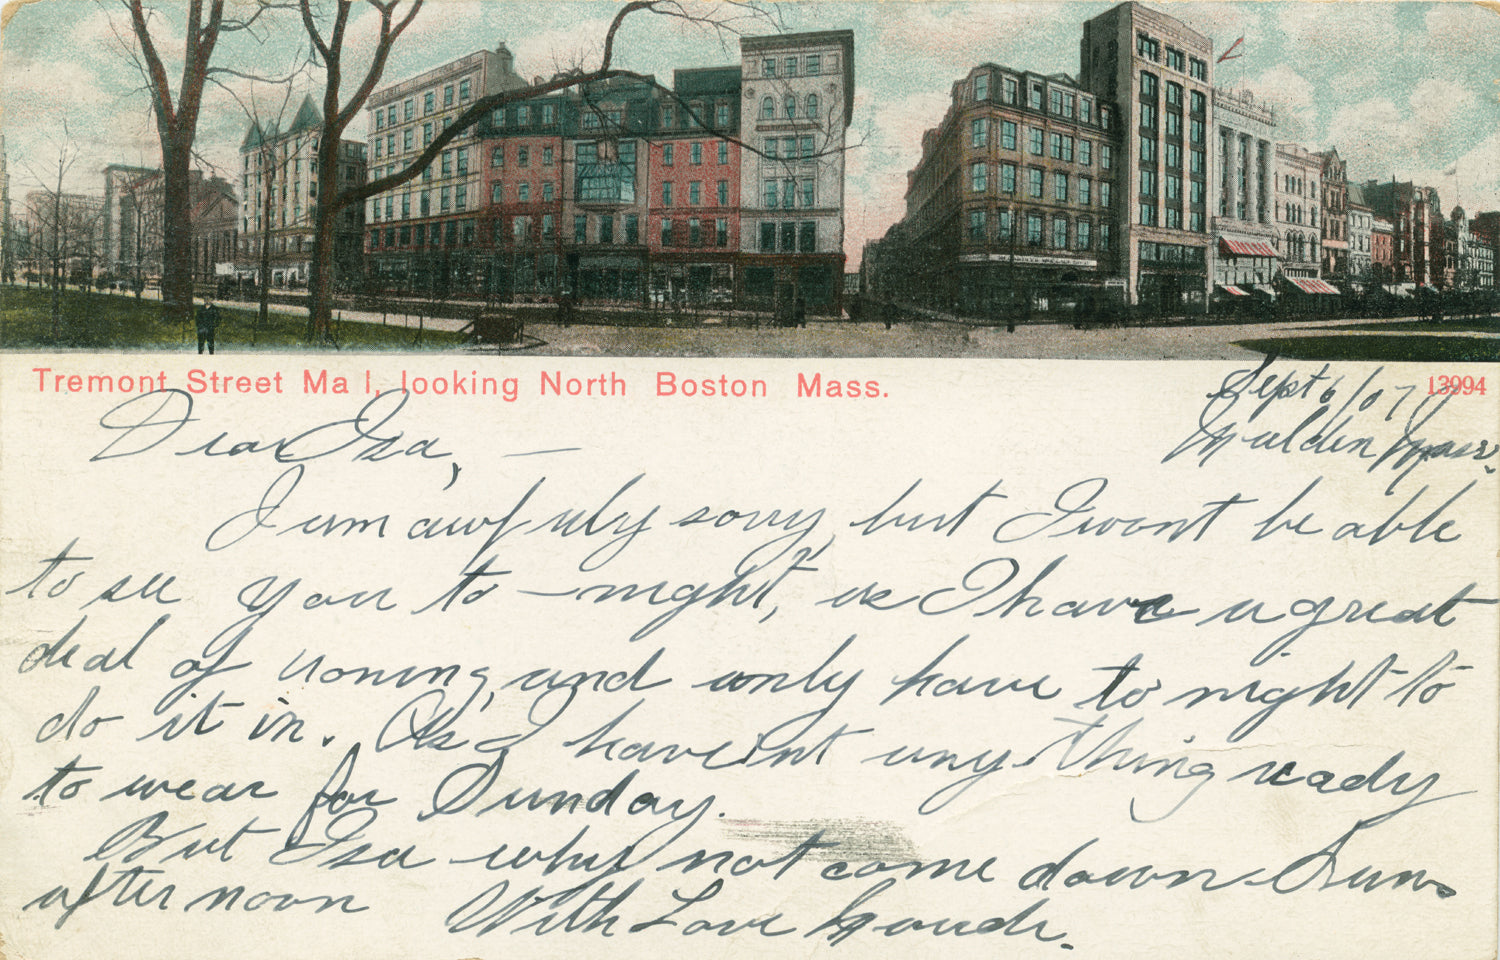 Tremont Street Mall, looking North Boston Mass.
13994
Sept 6/07
Malden Mass.
Dear Isa, —
I am awfully sorry, but I wont be able
to see you to-night, as I have a great
deal of ironing, and only have to night to
do it in. As I have'nt any thing ready
to wear for Sunday.
But Isa why not come down Sun.
after noon With Love Maude.